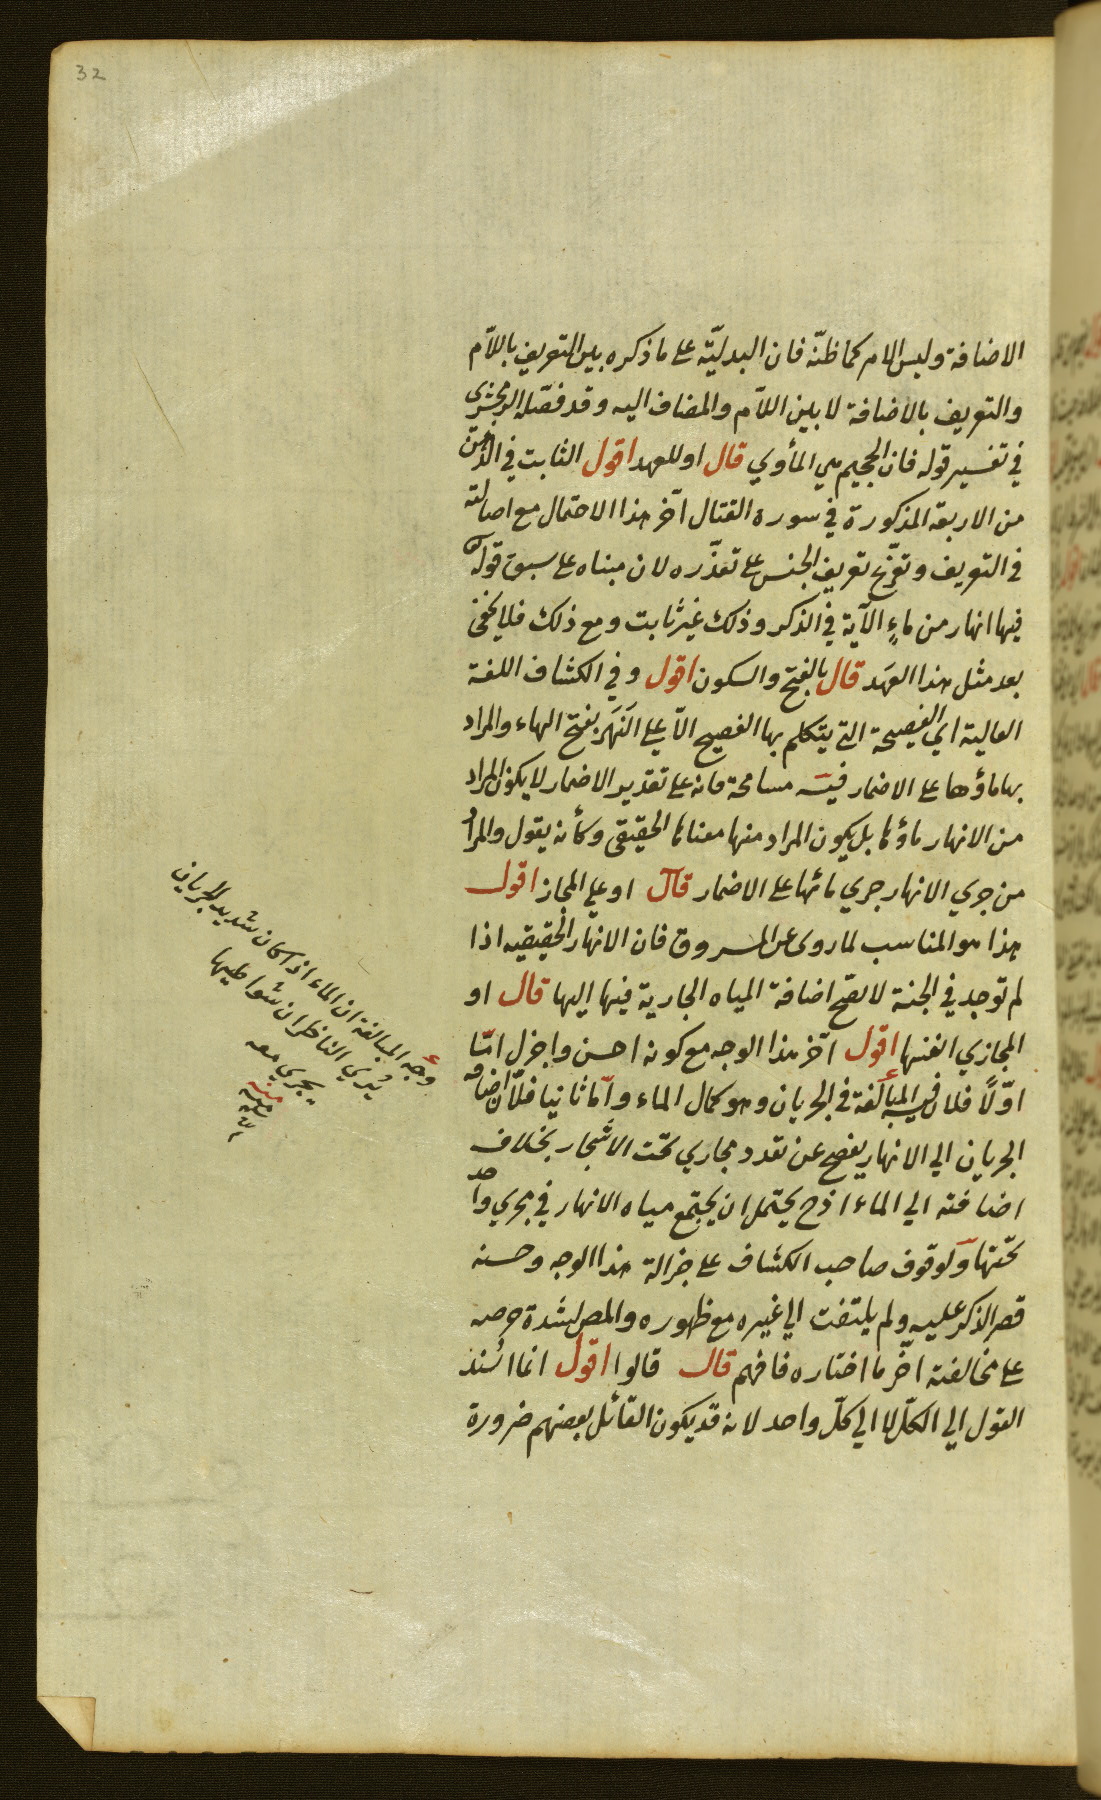 32
الاضافة وليس الامر كما ظنّه فان البدليّة على ما ذكره بين التعريف باللّام
والتعريف بالاضافة لا بين اللّام والمضاف اليه وقد فصّله الزمخشري
في تفسير قوله فان الجحيم هي المأوي قال او للعهد اقول الثابت في الذهن
من الاربعة المذكورة في سورة القتال آخر هذا الاحتمال مع اصالته
في التعريف وتفرّع تعريف الجنس على تعذّره لان مبناه على سبق قوله
فيها انهار من ماءٍ الآية في الذكر وذلك غير ثابت ومع ذلك فلا يخفى
بعد مثل هذا العهد قال بالفتح والسكون اقول وفي الكشاف اللغة
العالية اي الفصيحة التي يتكلم بها الفصيح الّا على النَهَر بفتح الهاء والمراد
بها ماؤها على الاضمار فيه مسامحة فانه على تقدير الاضمار لا يكون المراد
من الانهار ماؤها بل يكون المراد منها معناها الحقيقى وكأنه يقول والمراد
من جري الانهار جري مائها على الاضمار قال او على المجاز اقول
هذا هو المناسب لما روى عن المسروق فان الانهار الحقيقيه اذا
لم توجد في الجنة لا تصح اضافة المياه الجارية فيها اليها قال او
المجازي انفسها اقول آخر هذا الوجه مع كونه احسن واجزل امّا
اوّلاً فلان فيه المبالغة في الجريان وهو كمال الماء وامّا ثانيا فلأن اضافة
الجريان الي الانهار يفصح عن تعدد مجاري تحت الاشجار بخلاف
اضافته الي الماء اذ ح يحتمل ان يجتمع مياه الانهار في مجري واحد
تحتها ولوقوف صاحب الكشاف على جزالة هذا الوجه وحسنه
قصر الذكر عليه ولم يلتفت الي غيره مع ظهوره والمص لشدة حرصه
على مخالفته اخّر ما اختاره فافهم قال قالوا اقول انما اسند
القول الي الكلّ لا الي كلّ واحد لانه قد يكون القائل بعضهم ضرورة
وجه المبالغة ان الماء اذا كان شديد الجريان
يُري الناظر ان شواطيها
يجري معه
منه